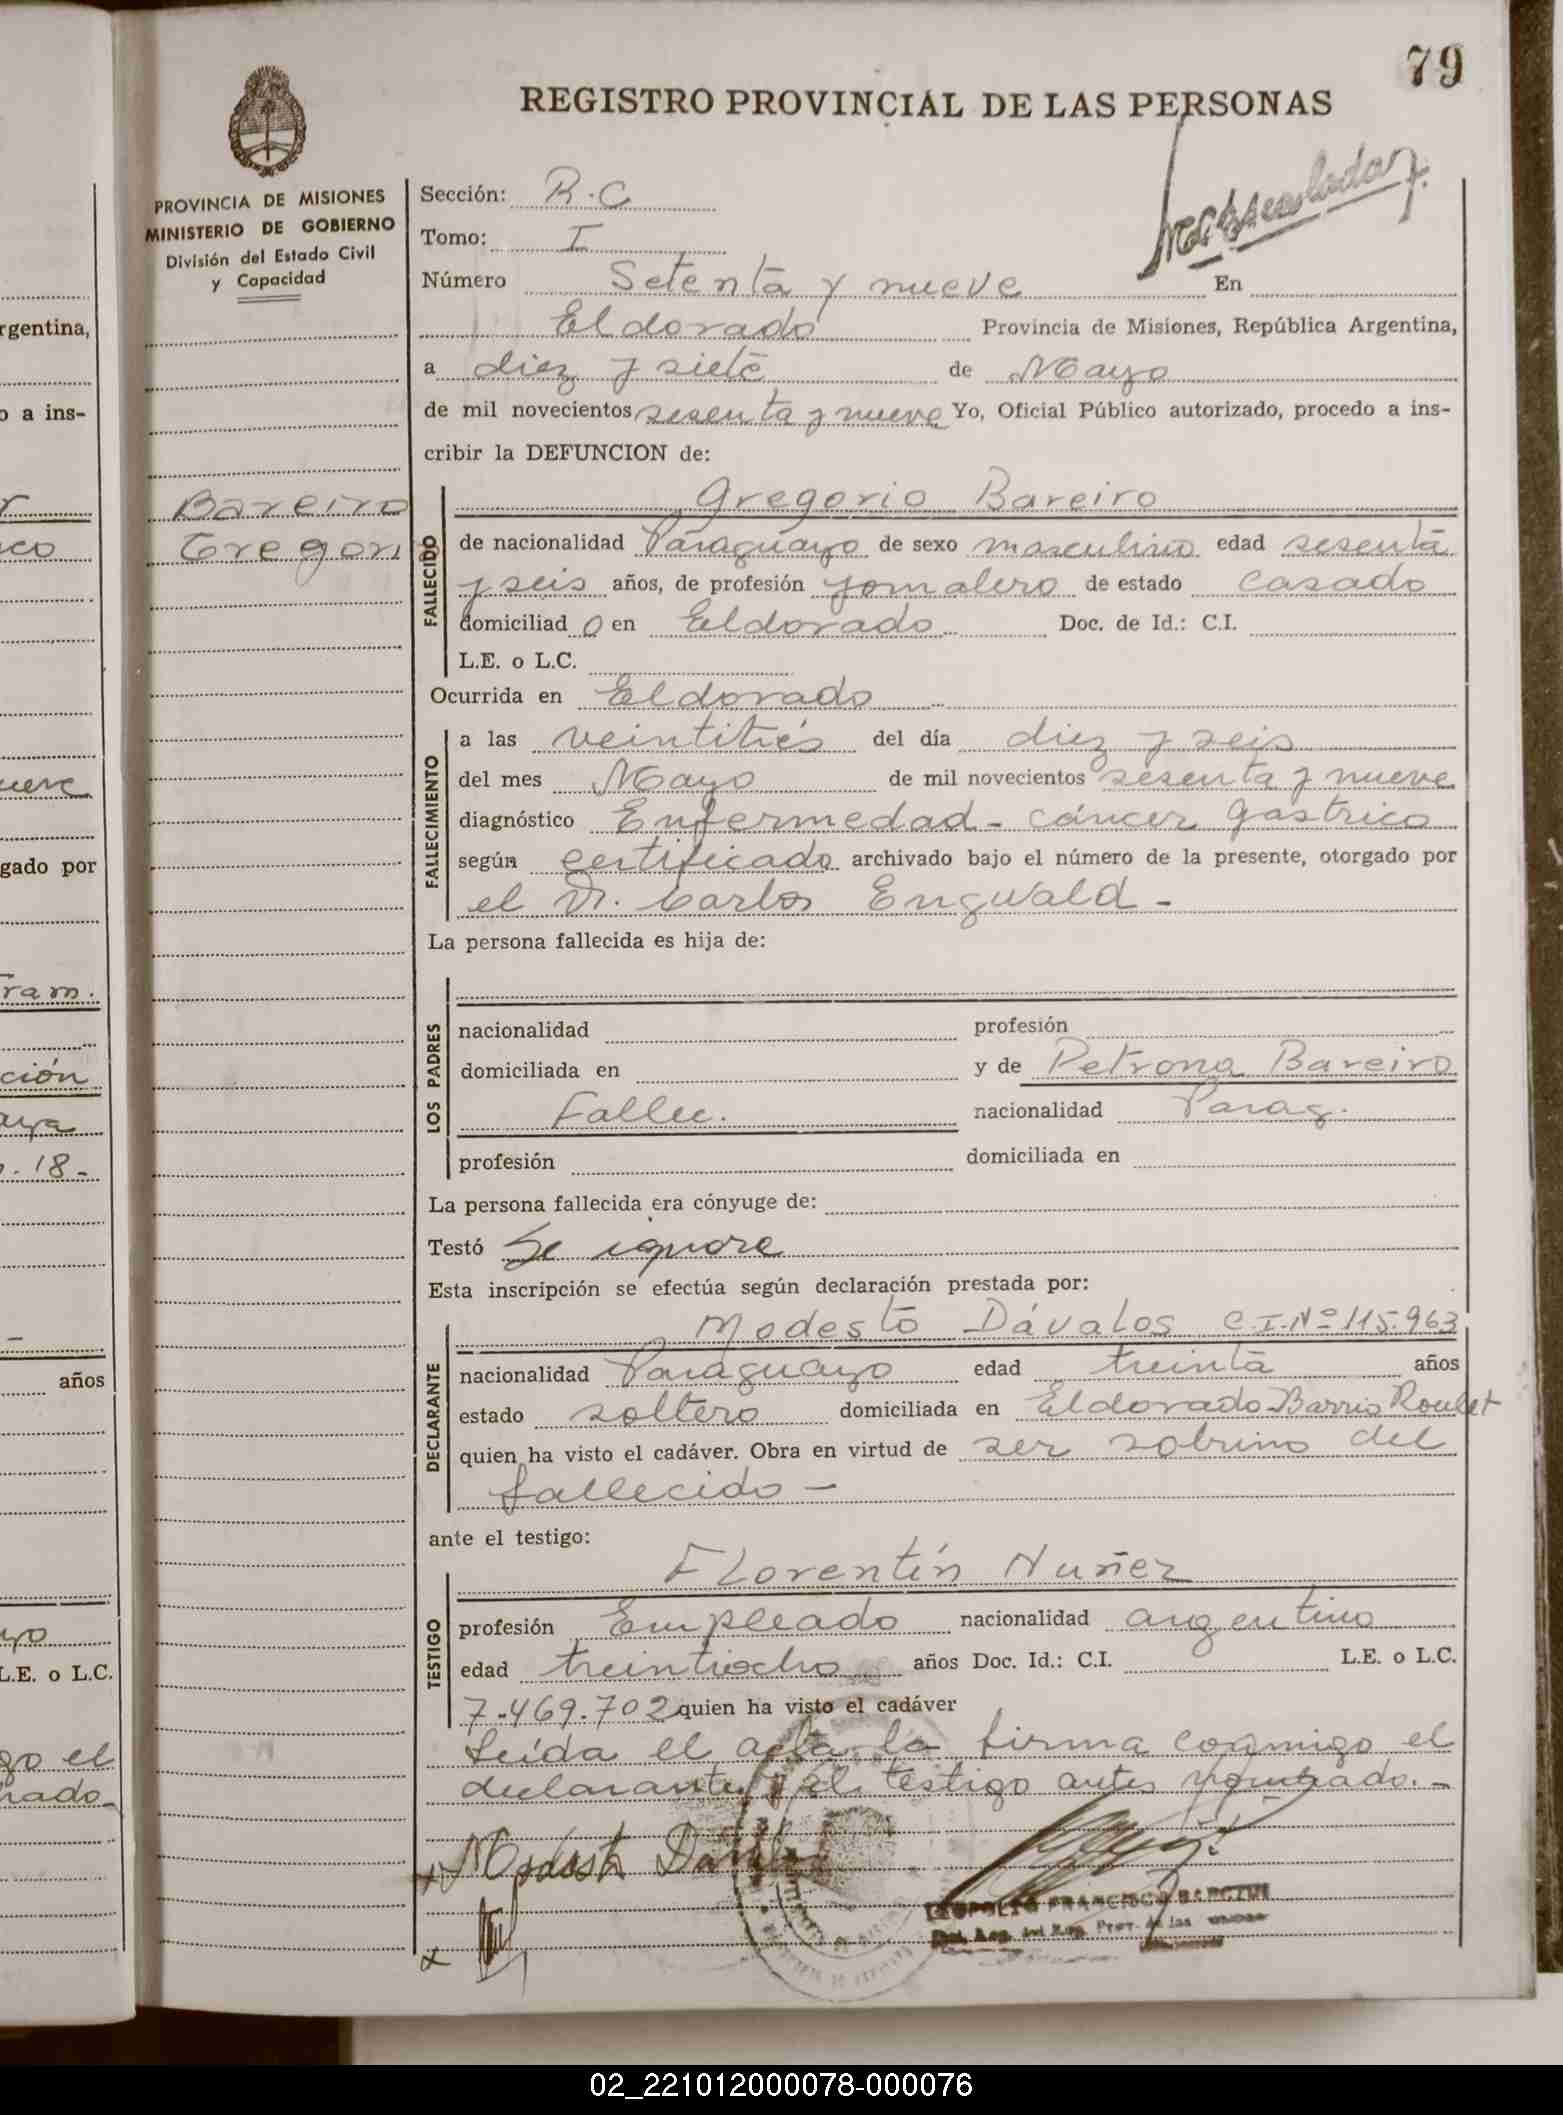 79
REGISTRO PROVINCIAL DE LAS PERSONAS
PROVINCIA DE MISIONES
MINISTERIO DE GOBIERNO
División del Estado Civil
y Capacidad
Bareiro
Gregori
Sección: R.C
Tomo: I
Número Setenta y nueve En
Eldorado Provincia de Misiones, República Argentina,
a diez y siete de Mayo
de mil novecientos sesenta y nueve Yo, Oficial Público autorizado, procedo a ins-
cribir la DEFUNCION de:
FALLECIDO
Gregorio Bareiro
de nacionalidad Paraguayo de sexo masculino edad sesenta
y seis años, de profesión jornalero de estado casado
domiciliad o en Eldorado Doc. de Id.: C.I.
L.E. o L.C.
Ocurrida en Eldorado
FALLECIMIENTO
a las veintitrés del día diez y seis
del mes Mayo de mil novecientos sesenta y nueve
diagnóstico Enfermedad - cáncer gastrico
según certificado archivado bajo el número de la presente, otorgado por
el Dr. Carlos Engwald -
La persona fallecida es hija de:
LOS PADRES
nacionalidad profesión
domiciliada en y de Petrona Bareiro
Fallec. nacionalidad Parag.
profesión domiciliada en
La persona fallecida era cónyuge de:
Testó Se ignora
Esta inscripción se efectúa según declaración prestada por:
DECLARANTE
Modesto Dávalos C.I. Nº 115.963
nacionalidad Paraguayo edad treinta años
estado soltero domiciliada en Eldorado-Barrio Roulet
quien ha visto el cadáver. Obra en virtud de ser sobrino del
fallecido -
ante el testigo:
TESTIGO
Florentín Nuñez
profesión Empleado nacionalidad argentino
edad treintiocho años Doc. Id.: C.I. L.E. o L.C.
7.469.702 quien ha visto el cadáver
Leída el acta la firma conmigo el
declarante y el testigo antes nombrado. -
Modesto
FRANCISCO
rgentina,
o a ins-
gado por
ram.
ción
aya
.18-
años
yo
L.E. o L.C.
go el
rado
02_221012000078-000076